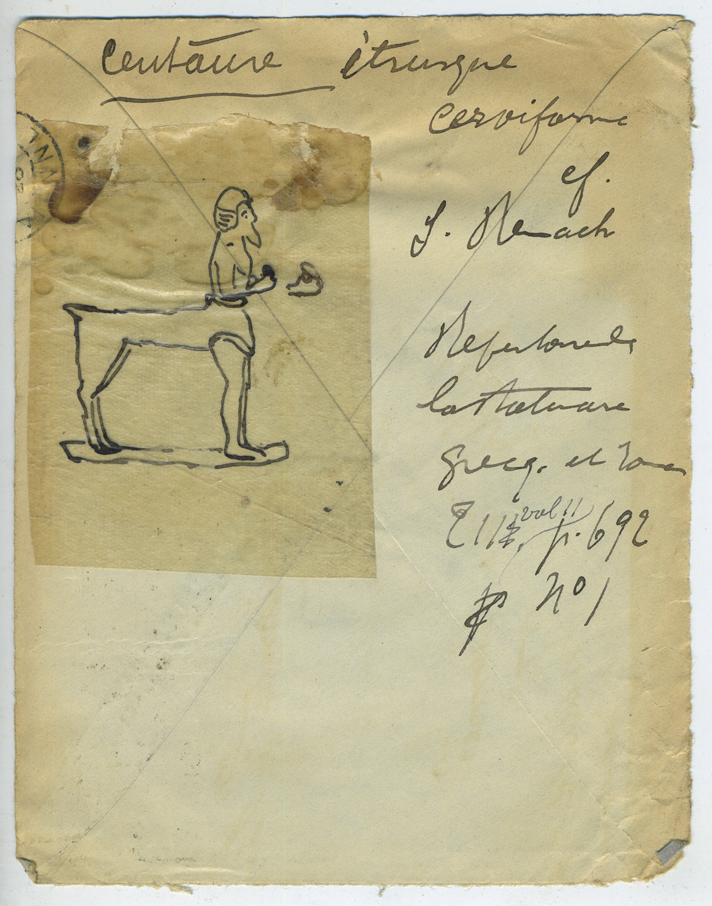 Centaure étrusque
cerviforme
cf.
S. Reinach
Répertoire de
la Statuaire
grecq. et rom
vol II
p. 692
nº 1